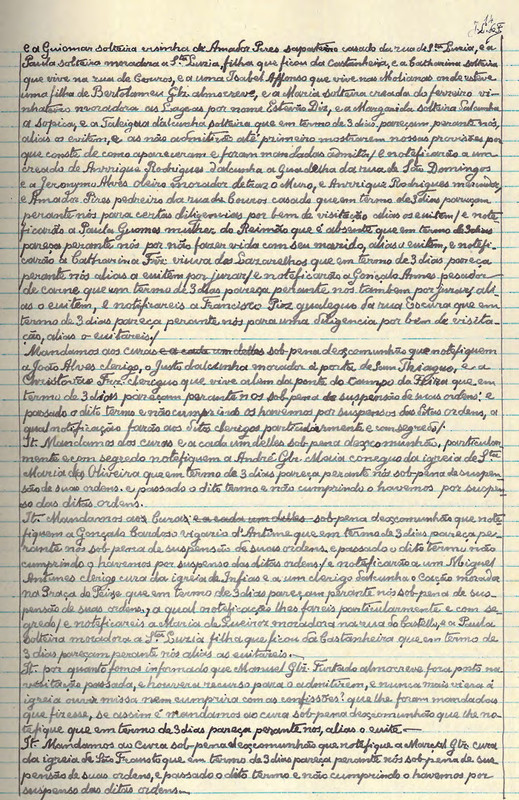 e a Guiomar solteira visinha de Amador Pires sapateiro casado da rua de S.ta Luzia, e a
Paula solteira moradora a S.ta Luzia, filha que ficou da Castanheira, e a Catharina solteira
que vive na rua de Couros, e a uma Isabel Affonso que vive nas Molianas onde esteve
uma filha de Bertolameu Glz almocreve, e a Maria solteira creada do ferreiro vi-
nhateiro moradora as Lageas por nome Estevão Diz, e a Margarida solteira dalcunha
a Sopica, e a Takigoa dalcunha solteira que em termo de 3 dias, pareçam perante nós,
alias o evitem, e as não admitirão até primeiro mostrarem nossas provisões por
que conste de como apareceram e foram mandadas admitir / e notificarão a um
creado de Anrrique Rodrigues dalcunha a Guadelha da rua de São Domingos
e a Jeronymo Alves oleiro morador detraz o Muro, e Anrrique Rodrigues mercador,
e Amador Pires pedreiro da rua de Couros casado que em termo de 3 dias pareçam
perante nós para certas diligencias por bem de visitação alias os evitem / e note-
ficarão a Paula Guomes mulher do Reimão que é absente que em termo de 3 dias
pareça perante nós por não fazer vida com seu marido, alias a evitem, e notefi-
carão a Catharina Frz viuva dos Lazarelhos que em termo de 3 dias, pareça
perante nós alias a evitem por jurar / e notificarão a Gonçalo Annes pesador
de carne que um termo de 3 dias pareça perante nós tambem por jurar, ali-
as o evitem, e notificareis a Francisco Piz qualquer da rua Escura que em
termo de 3 dias pareça perante nós para uma diligencia por bem de visita-
ção, alias o evitareis /
Mandamos aos curas e a cada um delles sob-pena dexcomunhão que notefiquem
a João Alves clerigo, o Justo dalcunha morador á porta de Sam Thiaguo, e a
Christovão Frz. clerigo que vive alem da ponte do Campo da Feira que em
termo de 3 dias pareçam perante nós sob-pena de suspensão de suas ordens: e
passado o dito termo e não cumprindo os havemos por suspensos das ditas ordens, a
qual notificação farão aos ditos clerigos particularmente e com segredo /.
It. Mandamos aos curas e a cada um delles sob-pena dexcomunhão, particular-
mente e com segredo notefiquem a André Glz. Maia conego da igreja de S.ta
Maria de Oliveira que em termo de 3 dias pareça perante nós sob-pena de suspen-
são de suas ordens. e passado o dito termo e não cumprindo o havemos por suspen-
so das ditas ordens.
It. Mandamos aos Curas e a cada um delles sob-pena dexcomunhão que note-
fiquem a Gonçalo Cardoso vigario d'Antime que em termo de 3 dias pareça pe-
rante nós sob-pena de suspensão de suas ordens, e passado o dito termo não
cumprindo o havemos por suspenso das ditas ordens, / e notificarão a um Miguel
Antunes clerigo cura da igreja de Infias e a um clerigo dalcunha o Cação morador
na Praça do Peixe que em termo de 3 dias pareçam perante nós sob-pena de sus-
pensão de suas ordens, a qual notificação lhes fareis particularmente e com se-
gredo / e notificareis a Maria de Queiroz moradora na rua do Castello, e a Paula
solteira moradora a S.ta Luzia filha que ficou da Castanheira que em termo de
3 dias pareçam perante nós aliás as evitareis.
It. por quanto fomos informado que Manuel Glz. Furtado almocreve fora posto na
visitação passada, e houvera recurso para o admitirem, e nunca mais viera á
igreja ouvir missa nem cumprira com as confissões? que lhe foram mandadas
que fizesse, se assim é mandamos ao cura sob-pena dexcomunhão que lhe no-
tefique que em termo de 3 dias pareça perante nós, alias o evite.
It. Mandamos ao cura sob-pena dexcomunhão que notefique a Marçal Glz cura
da igreja de São Fraústo que em termo de 3 dias pareça perante nós sob-pena de sus-
pensão de suas ordens, e passado o dito termo e não cumprindo o havemos por
suspenso das ditas ordens.